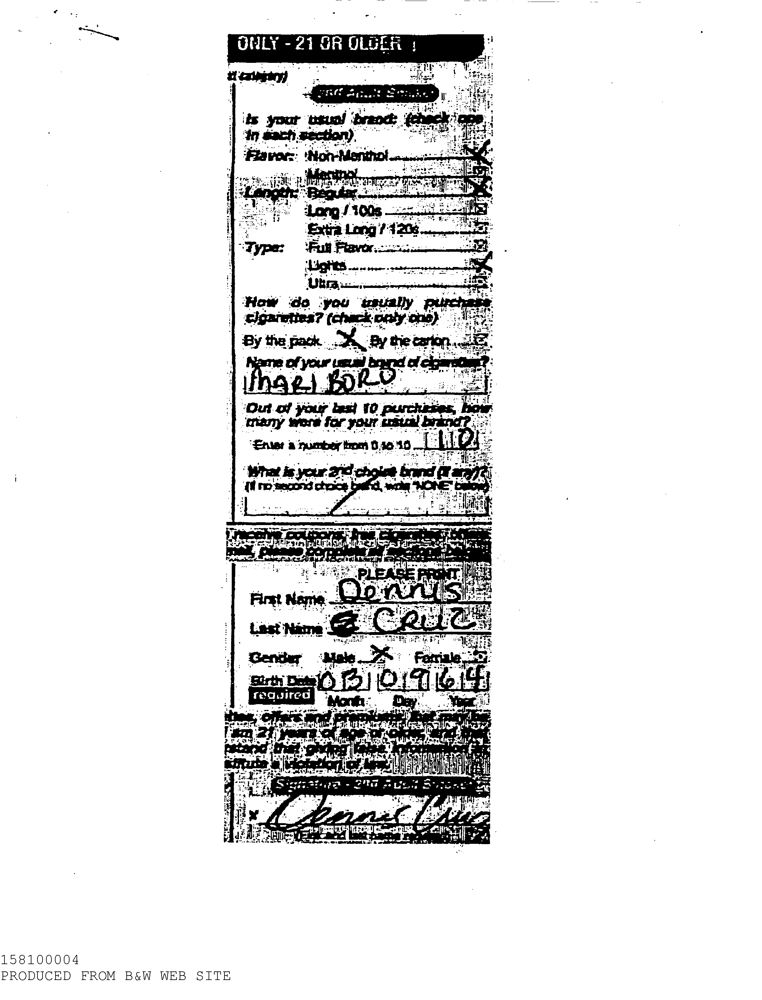 ONLY - 21 OR OLDER
category)
Is your usual brand: (check one
in each section)
Flavor: Non-Menthol
Menthol
Length: Regular
Long / 100s
Extra Long / 120s
Type: Full Flavor
Lights
Ultra
How do you usually purchase
cigarettes? (check only one)
By the pack X By the carton
Name of your usual brand of cigarettes?
MARlBORO
Out of your last 10 purchases, how
many were for your usual brand?
Enter a number from 0 to 10 10
What is your 2nd choice brand (if any)?
(If no second choice brand, write "NONE" below)
receive coupons, free cigarettes, offers
mail, please complete all sections below
PLEASE PRINT
First Name Dennis
Last Name CRUZ
Gender Male X Female
Birth Date 03 09 64
required Month Day Year
offers and premiums that may be
am 21 years of age or older, and that
stand that giving false information
a violation of law.
x Dennis Cruz
and last name
158100004
PRODUCED FROM B&W WEB SITE